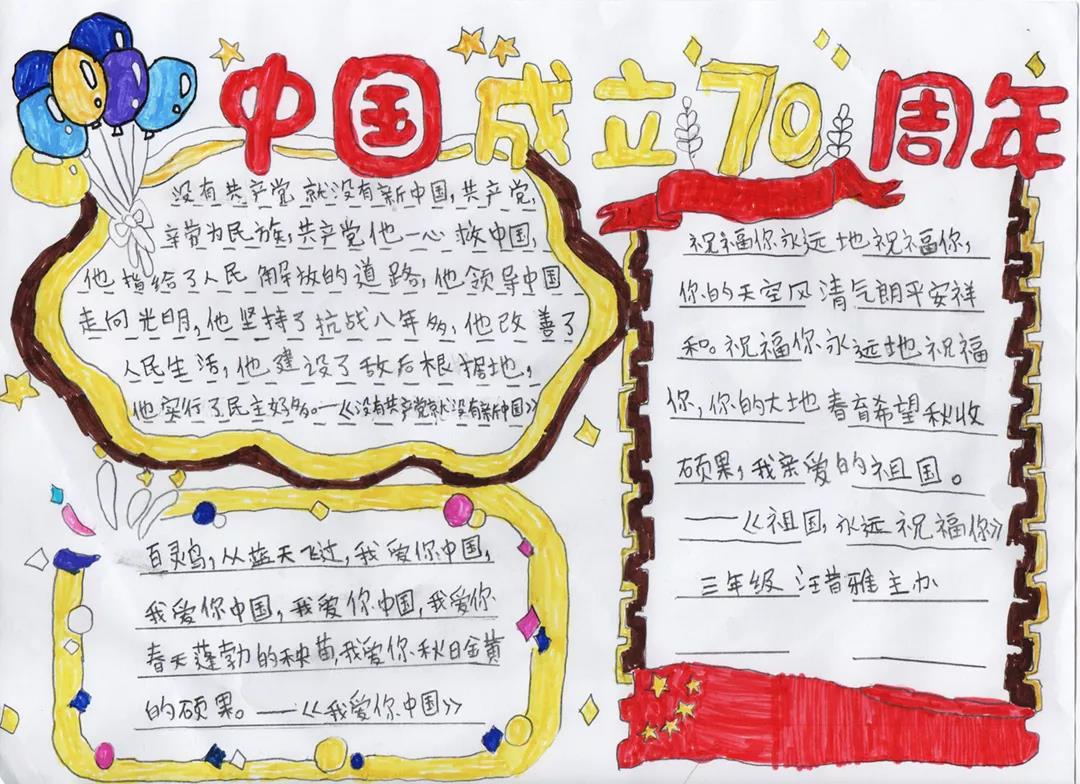 中国成立70周年
没有共产党就没有新中国,共产党,
辛劳为民族,共产党他一心救中国,
他指给了人民解放的道路,他领导中国
走向光明,他坚持了抗战八年多,他改善了
人民生活,他建设了敌后根据地,
他实行了民主好多。——《没有共产党就没有新中国》
百灵鸟,从蓝天飞过,我爱你中国,
我爱你中国,我爱你中国,我爱你
春天蓬勃的秧苗,我爱你秋日金黄
的硕果。——《我爱你中国》
祝福你永远地祝福你,
你的天空风清气朗平安祥
和。祝福你永远地祝福
你,你的大地春育希望秋收
硕果,我亲爱的祖国。
——《祖国,永远祝福你》
三年级 汪昔雅主办